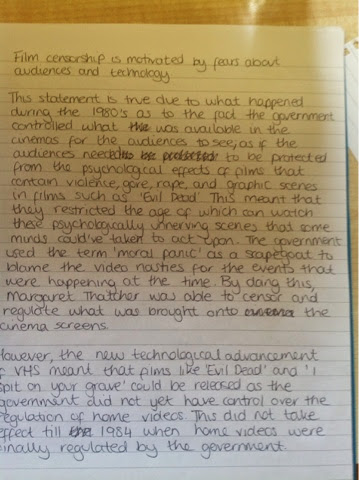 Film censorship is motivated by fears about
audiences and technology
This statement is true due to what happened
during the 1980's as to the fact the government
controlled what was available in the
cinemas for the audiences to see, as if the
audiences needed to be protected to be protected
from the psychological effects of films that
contain violence, gore, rape, and graphic scenes
in films such as 'Evil Dead'. This meant that
they restricted the age of which can watch
these psychologically unnerving scenes that some
minds could've taken to act upon. The government
used the term 'moral panic' as a scapegoat to
blame the video nasties for the events that
were happening at the time. By doing this,
Margaret Thatcher was able to censor and
regulate what was brought onto the
cinema screens.
However, the new technological advancement
of VHS meant that films like 'Evil Dead' and 'I
spit on your grave' could be released as the
government did not yet have control over the
regulation of home videos. This did not take
effect till 1984 when home videos were
finally regulated by the government.